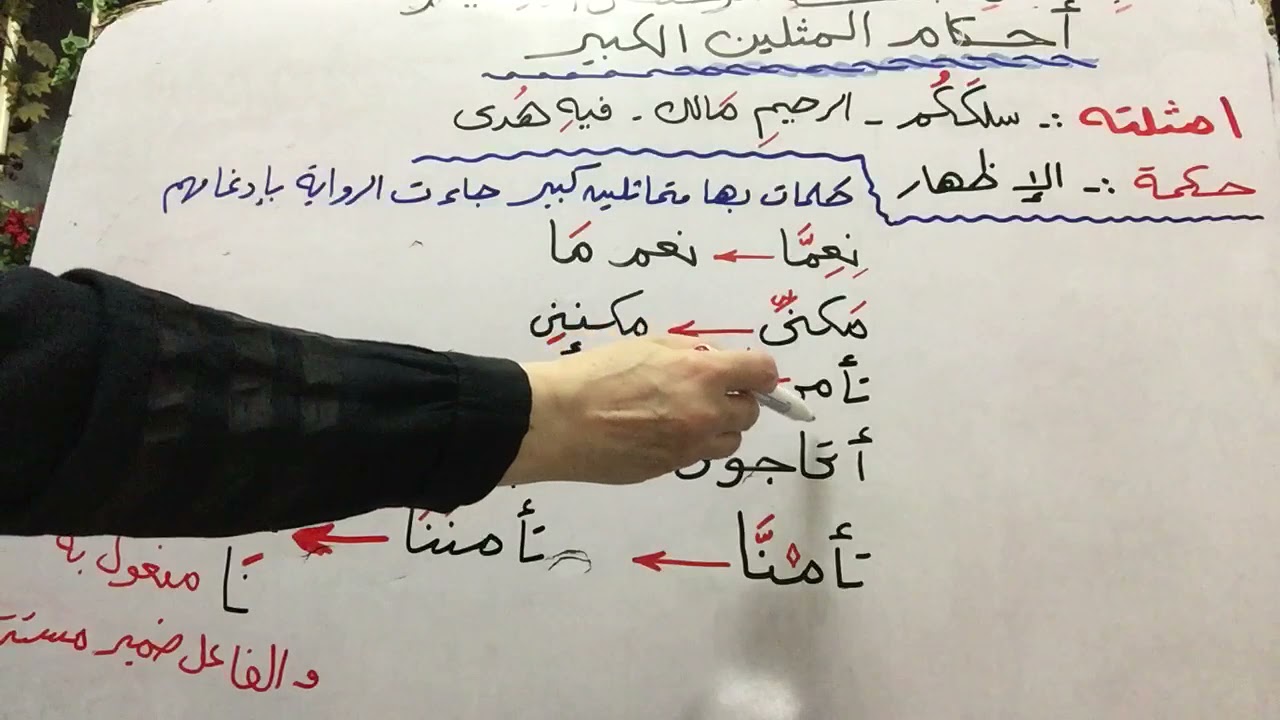 أحكام المثلين الكبير
امثلته :- سلككُم - الرحيمِ مَالك - فيهِ هُدى
حكمة :- الإظهار
كلمات بها متماثلين كبير جاءت الرواية بإدغامهم
نِعِمَّا ← نعم مَا
مَكنىِّ ← مكننِي
تأمر
أتحاجون
تأمنَّا ← تأمنَنَا ←
نَا مفعول به
والفاعل ضمير مستتر